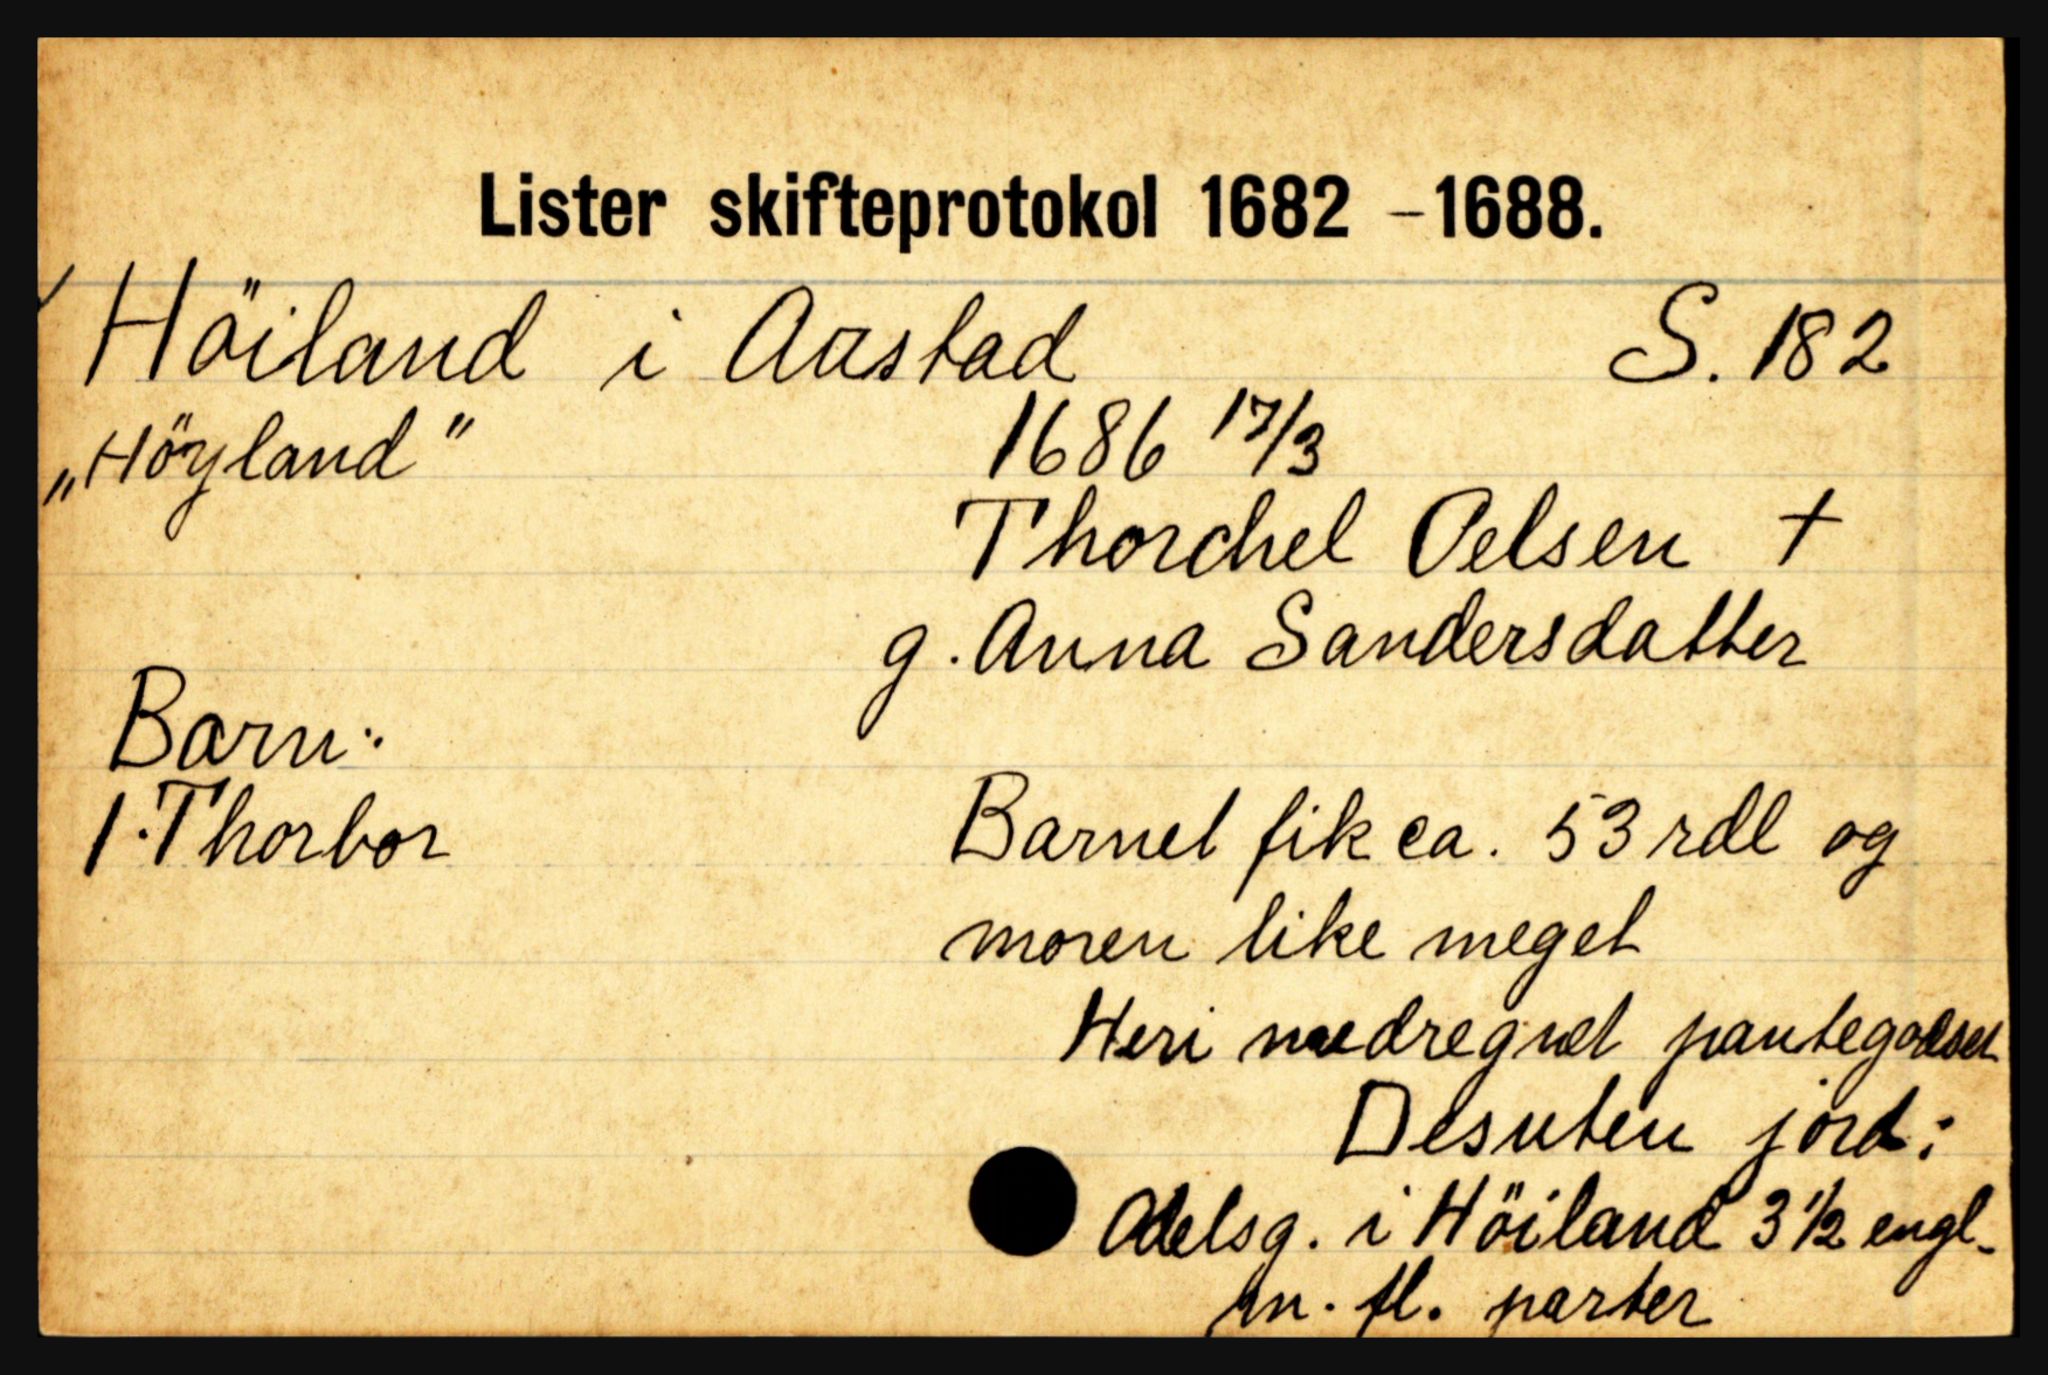 Lister skifteprotokol 1682 - 1688.
Höiland i Aastad S. 182
„Höyland" 1686 17/3
Thorchel Oelsen +
g. Anna Sandersdatter
Barn:
1. Thorbor Barnet fik ca. 53 rdl og
moren like meget
Heri medregnet pantegodset
Desuten jord:
Odelsg. i Höiland 3 1/2 engl.
m. fl. parter